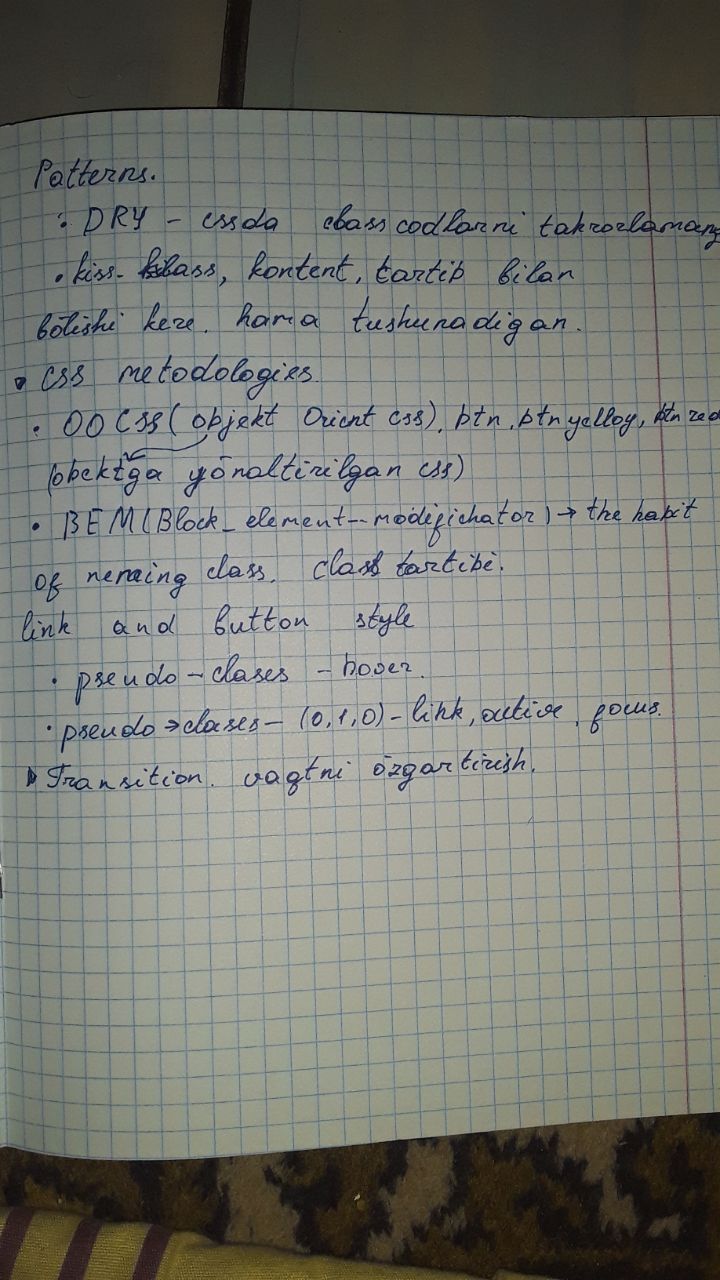 Patterns.
: DRY - cssda class codlarni takrorlamang
• kiss- klass, kontent, tartib bilan
bõlishi kere. hama tushunadigan.
• CSS metodologies.
• OOCSS (objekt Orient css), btn, btn yelloy, btn red
(obektga yõnaltirilgan css)
• BEM (Block_element--modifichator) → the habit
of neraing class. class tartibi.
link and button style
• pseudo-clases - hover.
• pseudo → clases - (0,1,0) - link, active, focus.
• Transition. vaqtni õzgartirish.